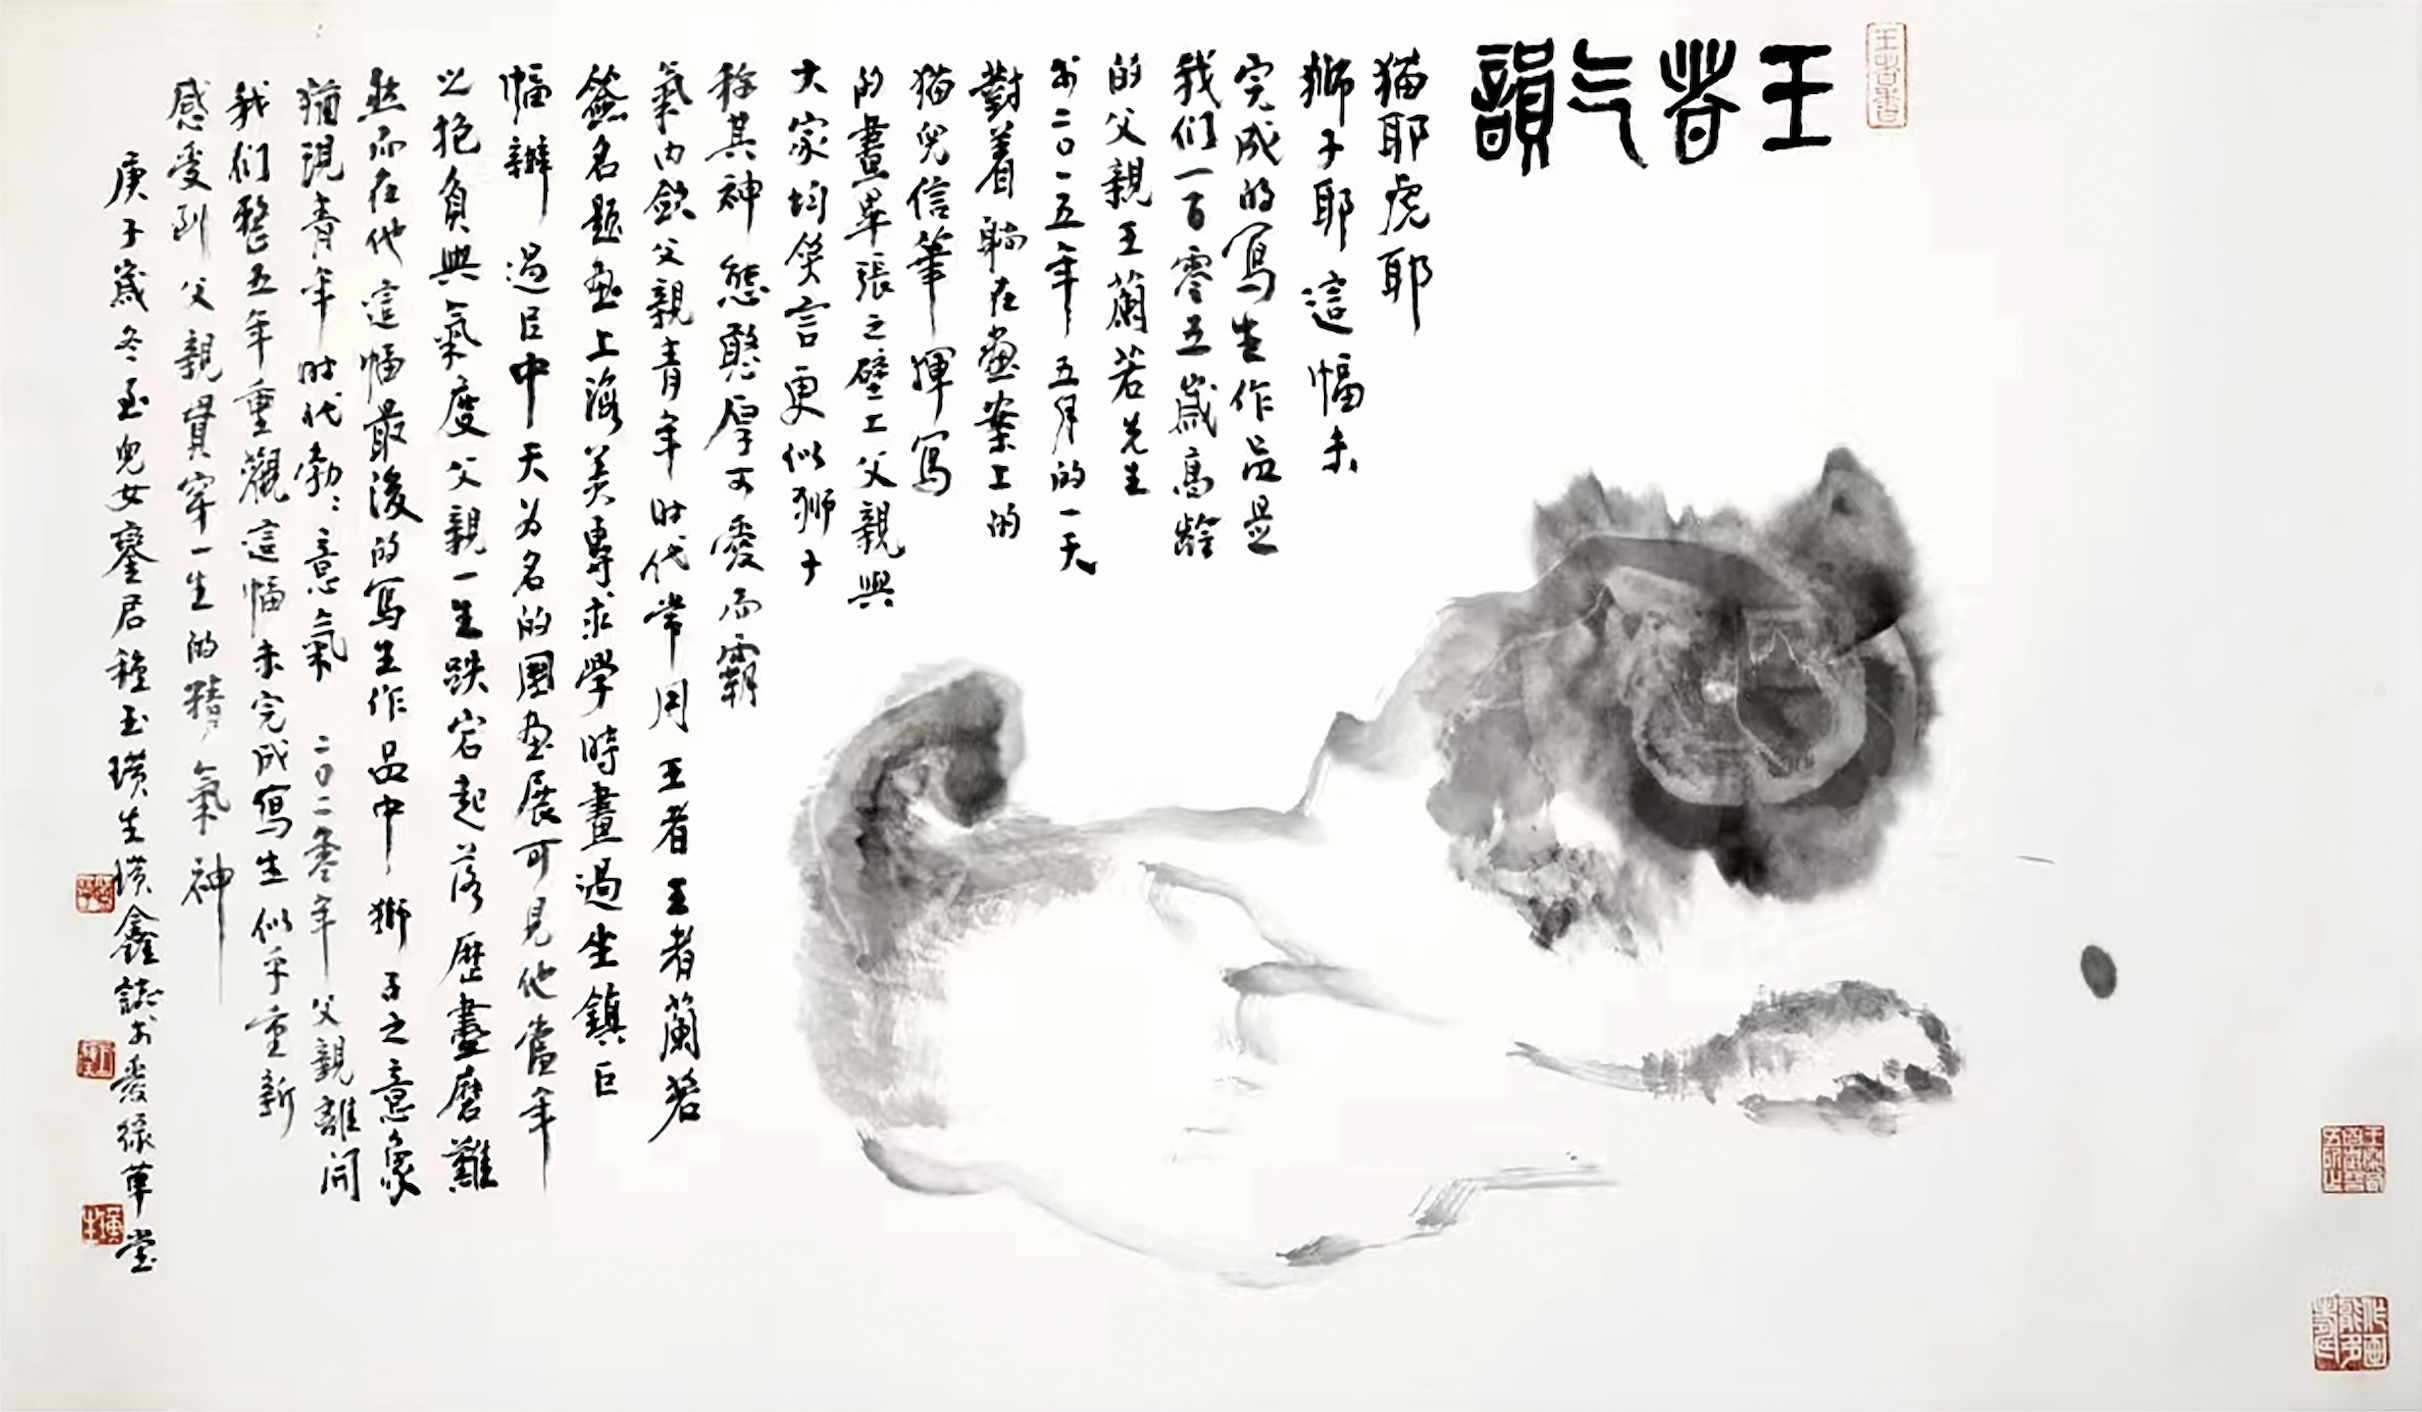 王者气韻
猫耶虎耶
獅子耶這幅未
完成的寫生作品是
我们一百零五歲高齡
的父親王蘭若先生
於二〇一五年五月的一天
對着躺在畫案上的
猫兒信筆揮寫
的畫畢張之壁上父親與
大家均笑言更似獅子
稱其神態憨厚可愛而霸
氣内斂父親青年时代常用王者王者蘭若
簽名題画上海美專求學時畫過坐鎮巨
幅辦過吕中天为名的國画展可見他當年
之抱負與氣度父親一生跌宕起落歷盡磨難
然而在他這幅最後的寫生作品中獅子之意象
猶現青年时代勃〻意氣二〇二零年父親離開
我们整五年重觀這幅未完成寫生似乎重新
感受到父親貫穿一生的精氣神
庚子歲冬至兒女鑾居種玉璜生璜鑫誌於愛綠草堂